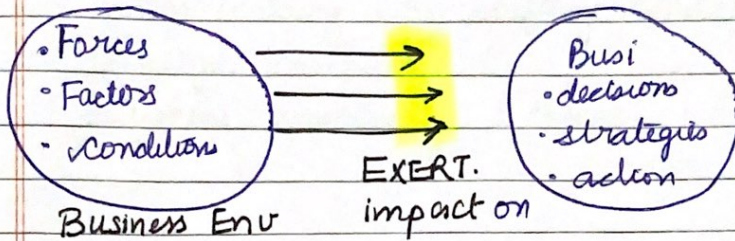 • Forces
• Factors
• Condition
Business Env
EXERT.
impact on
Busi
• decisions
• strategies
• action